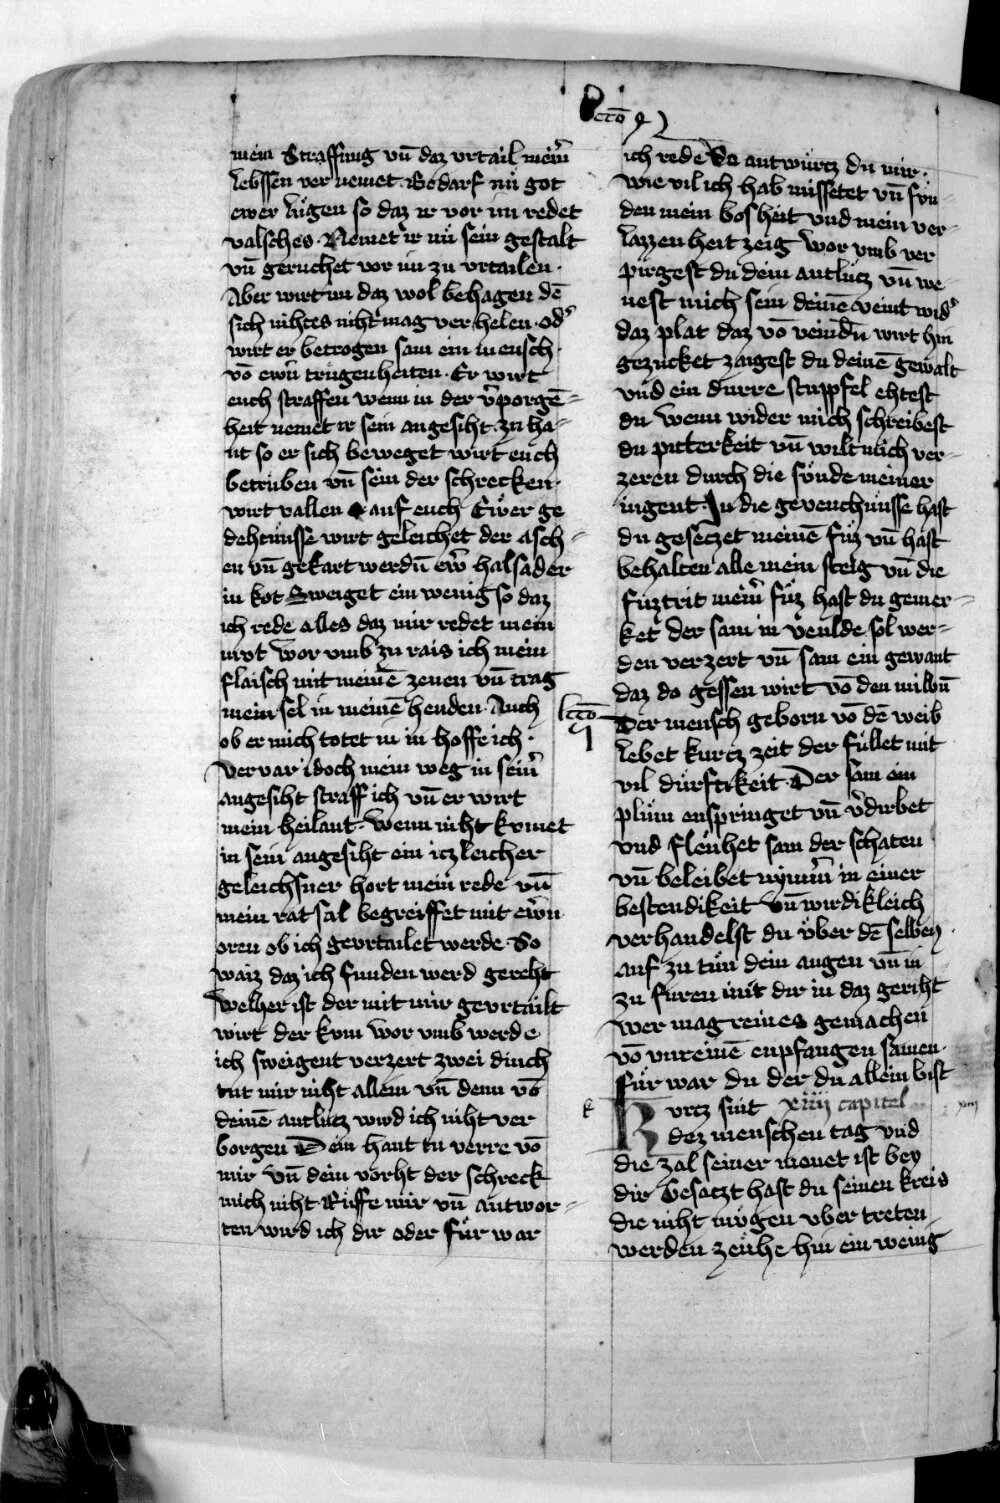 lccō 9
mein straffung vn̄ daz vrtail mein̄
lebssen ver nemet. Bedarf nu got
ewer lügen so daz ir vor im redet
valsches. Nemet ir nu sein gestalt
vn̄ geruchet vor im zu vrtailen.
Aber wirt im daz wol behagen dē
sich nihtes niht mag ver helen. Od̄
wirt er betrogen sam ein mensch.
vō ewn̄ trugenheiten. Er wirt
euch straffen wenn in der v̄porgē-
heit nemet ir sein angesiht. zu ha-
nt so er sich beweget wirt euch
betrüben vn̄ sein der schrecken.
wirt vallen auf euch Ewer ge
dehtnüsse wirt geleichet der asch-
en vn̄ gekart werdn̄ ew̄ halsader
in kot Sweiget ein wenig so daz
ich rede alles daz mir redet mein
mvt wor vmb zu rais ich mein
flaisch mit meinē zenen vn̄ trag
mein sel in meinē henden. Auch
ob er mich totet in in hoffe ich.
vervar idoch mein weg in sein̄
angesiht straff ich vn̄ er wirt
mein heilant. wenn niht kvmet
in sein angesiht ein iczleicher
geleichsner hort mein rede vn̄
mein ratsal begreiffet mit ewn̄
oren ob ich gevrtailet werde So
waiz daz ich funden werd gereht
welher ist der mit mir gevrtailt
wirt der kvm wor vmb werde
ich sweigent verzert zwei dinch
tut mir niht allein vn̄ denn vō
deinē antlutz wird ich niht ver
borgen Dein hant tu verre vō
mir vn̄ dein vorht der schreck
mich niht Rüffe mir vn̄ antwor-
ten wird ich dir oder für war
ich rede So antwurtz du mir.
wie vil ich hab missetet vn̄ sün-
den mein bosheit vnd mein ver-
lazzenheit zeig wor vmb ver
pirgest du dein antlutz vn̄ we-
nest mich sein deinē veint wid̄
daz plat daz vō veindn̄ wirt hin
gezucket zaigest du deinē gewalt
vnd ein durre stupfel ehtest
du wenn wider mich schreibest
du pitterkeit vn̄ wilt mich ver-
zeren durch die sünde meiner
iugent. In die gevenchnüsse hast
du gesetzet meinē fuz vn̄ hast
behalten alle mein steig vn̄ die
fuztrit mein̄ füz hast du gemer-
ket der sam in veulde sol wer-
den verzert vn̄ sam ein gewant
daz do gessen wirt vō den milbn̄
lccō
Der mensch geborn vō dē weib
lebet kurtz zeit der füllet mit
vil dürftikeit Der sam ein
plüm enspringet vn̄ v̄dirbet
vnd fleuhet sam der schaten
vn̄ beleibet nymm̄ in einer
bestendikeit vn̄ wirdikleich
verhandelst du vber dē selben.
auf zu tün dein augen vn̄ in
zu furen mit dir in daz geriht
wer mag reines gemachen
vō vnreinē enpfangen samen.
für war du der du allein bist
k Kurtz sint xiiij capitel xiiij
dez menschen tag vnd
die zal seiner monet ist bey
dir Gesatzt hast du seinen kreis
die niht mügen vber treten
werden zeuhe hin ein wenig